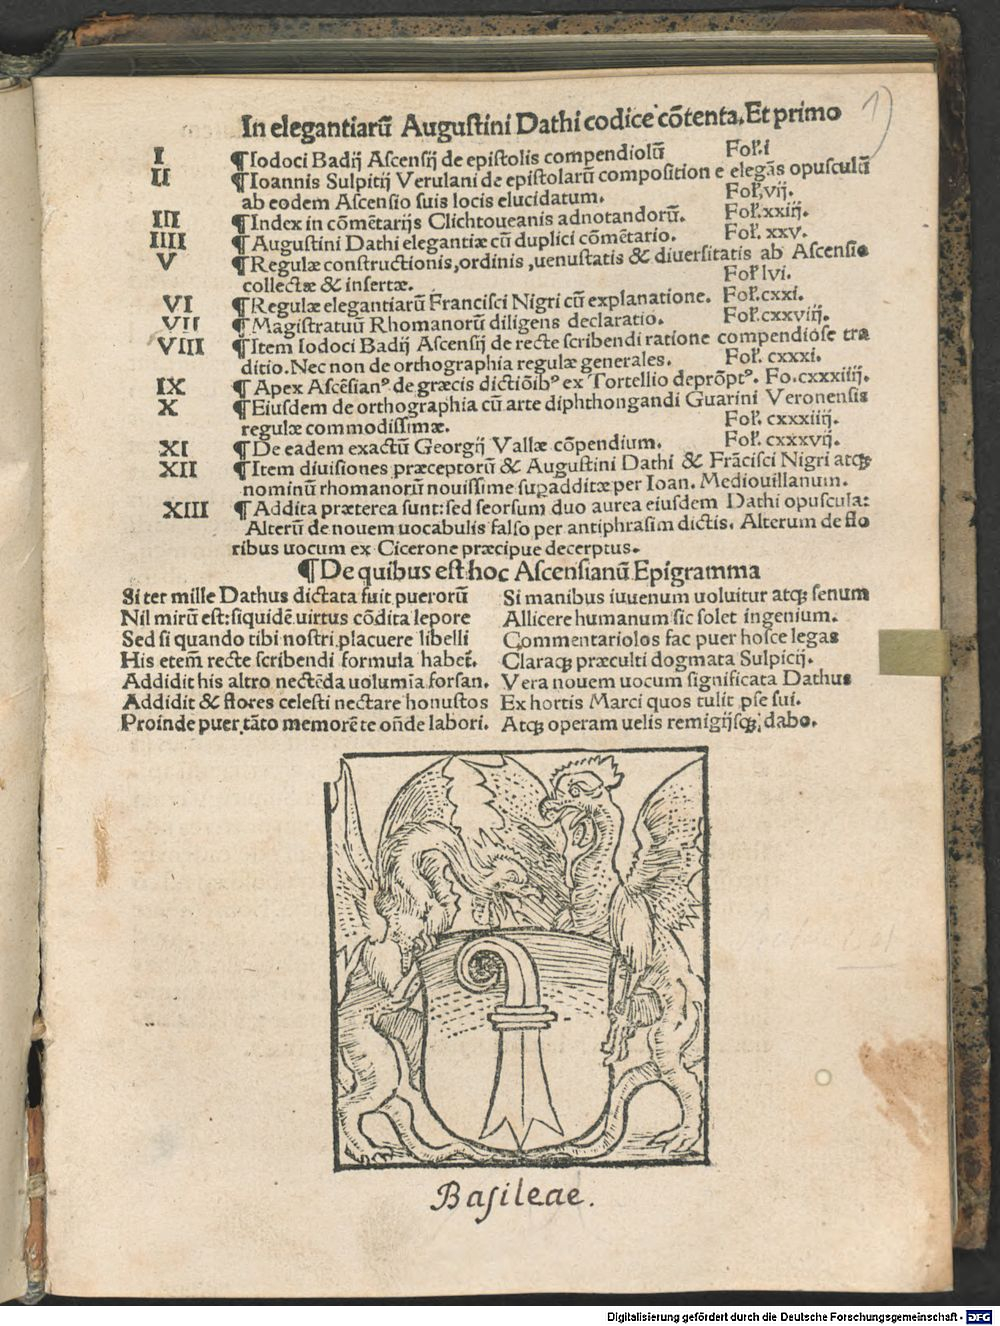 1)
In elegantiarū Augustini Dathi codice cōtenta, Et primo
I ¶Iodoci Badij Ascensij de epistolis compendiolū Fol. i
II ¶Ioannis Sulpitij Verulani de epistolarū composition e elegās opusculū
ab eodem Ascensio suis locis elucidatum. Fol. vij.
III ¶Index in cōmētarijs Clichtoueanis adnotandorū. Fol. xxiij.
IIII ¶Augustini Dathi elegantiæ cū duplici cōmētario. Fol. xxv.
V ¶Regulæ constructionis, ordinis, uenustatis & diuersitatis ab Ascensio
collectæ & insertæ. Fol lvi.
VI ¶Regulæ elegantiarū Francisci Nigri cū explanatione. Fol. cxxi.
VII ¶Magistratuū Rhomanorū diligens declaratio. Fol. cxxviij.
VIII ¶Item Iodoci Badij Ascensij de recte scribendi ratione compendiose tra
ditio. Nec non de orthographia regulæ generales. Fol. cxxxi.
IX ¶Apex Ascēsianꝰ de græcis dictiōibꝰ ex Tortellio deprōptꝰ. Fo. cxxxiiij.
X ¶Eiusdem de orthographia cū arte diphthongandi Guarini Veronensis
regulæ commodissimæ. Fol. cxxxiiij.
XI ¶De eadem exactū Georgij Vallæ cōpendium. Fol. cxxxvij.
XII ¶Item diuisiones præceptorū & Augustini Dathi & Frācisci Nigri atqꝫ
nominū rhomanorū nouissime supadditæ per Ioan. Mediouillanum.
XIII ¶Addita præterea sunt: sed seorsum duo aurea eiusdem Dathi opuscula:
Alterū de nouem uocabulis falso per antiphrasim dictis. Alterum de flo
ribus uocum ex Cicerone præcipue decerptus.
¶De quibus est hoc Ascensianū Epigramma
Si ter mille Dathus dictata fuit puerorū
Nil mirū est: siquidē uirtus cōdita lepore
Sed si quando tibi nostri placuere libelli
His etem̄ recte scribendi formula habet̄.
Addidit his altro nectēda uolumīa forsan.
Addidit & flores celesti nectare honustos
Proinde puer tāto memorē te oñde labori.
Si manibus iuuenum uoluitur atqꝫ senum
Allicere humanum sic solet ingenium.
Commentariolos fac puer hosce legas
Claraqꝫ præculti dogmata Sulpicij.
Vera nouem uocum significata Dathus
Ex hortis Marci quos tulit pse sui.
Atqꝫ operam uelis remigijsqꝫ dabo.
Basileae.
Digitalisierung gefördert durch die Deutsche Forschungsgemeinschaft - DFG